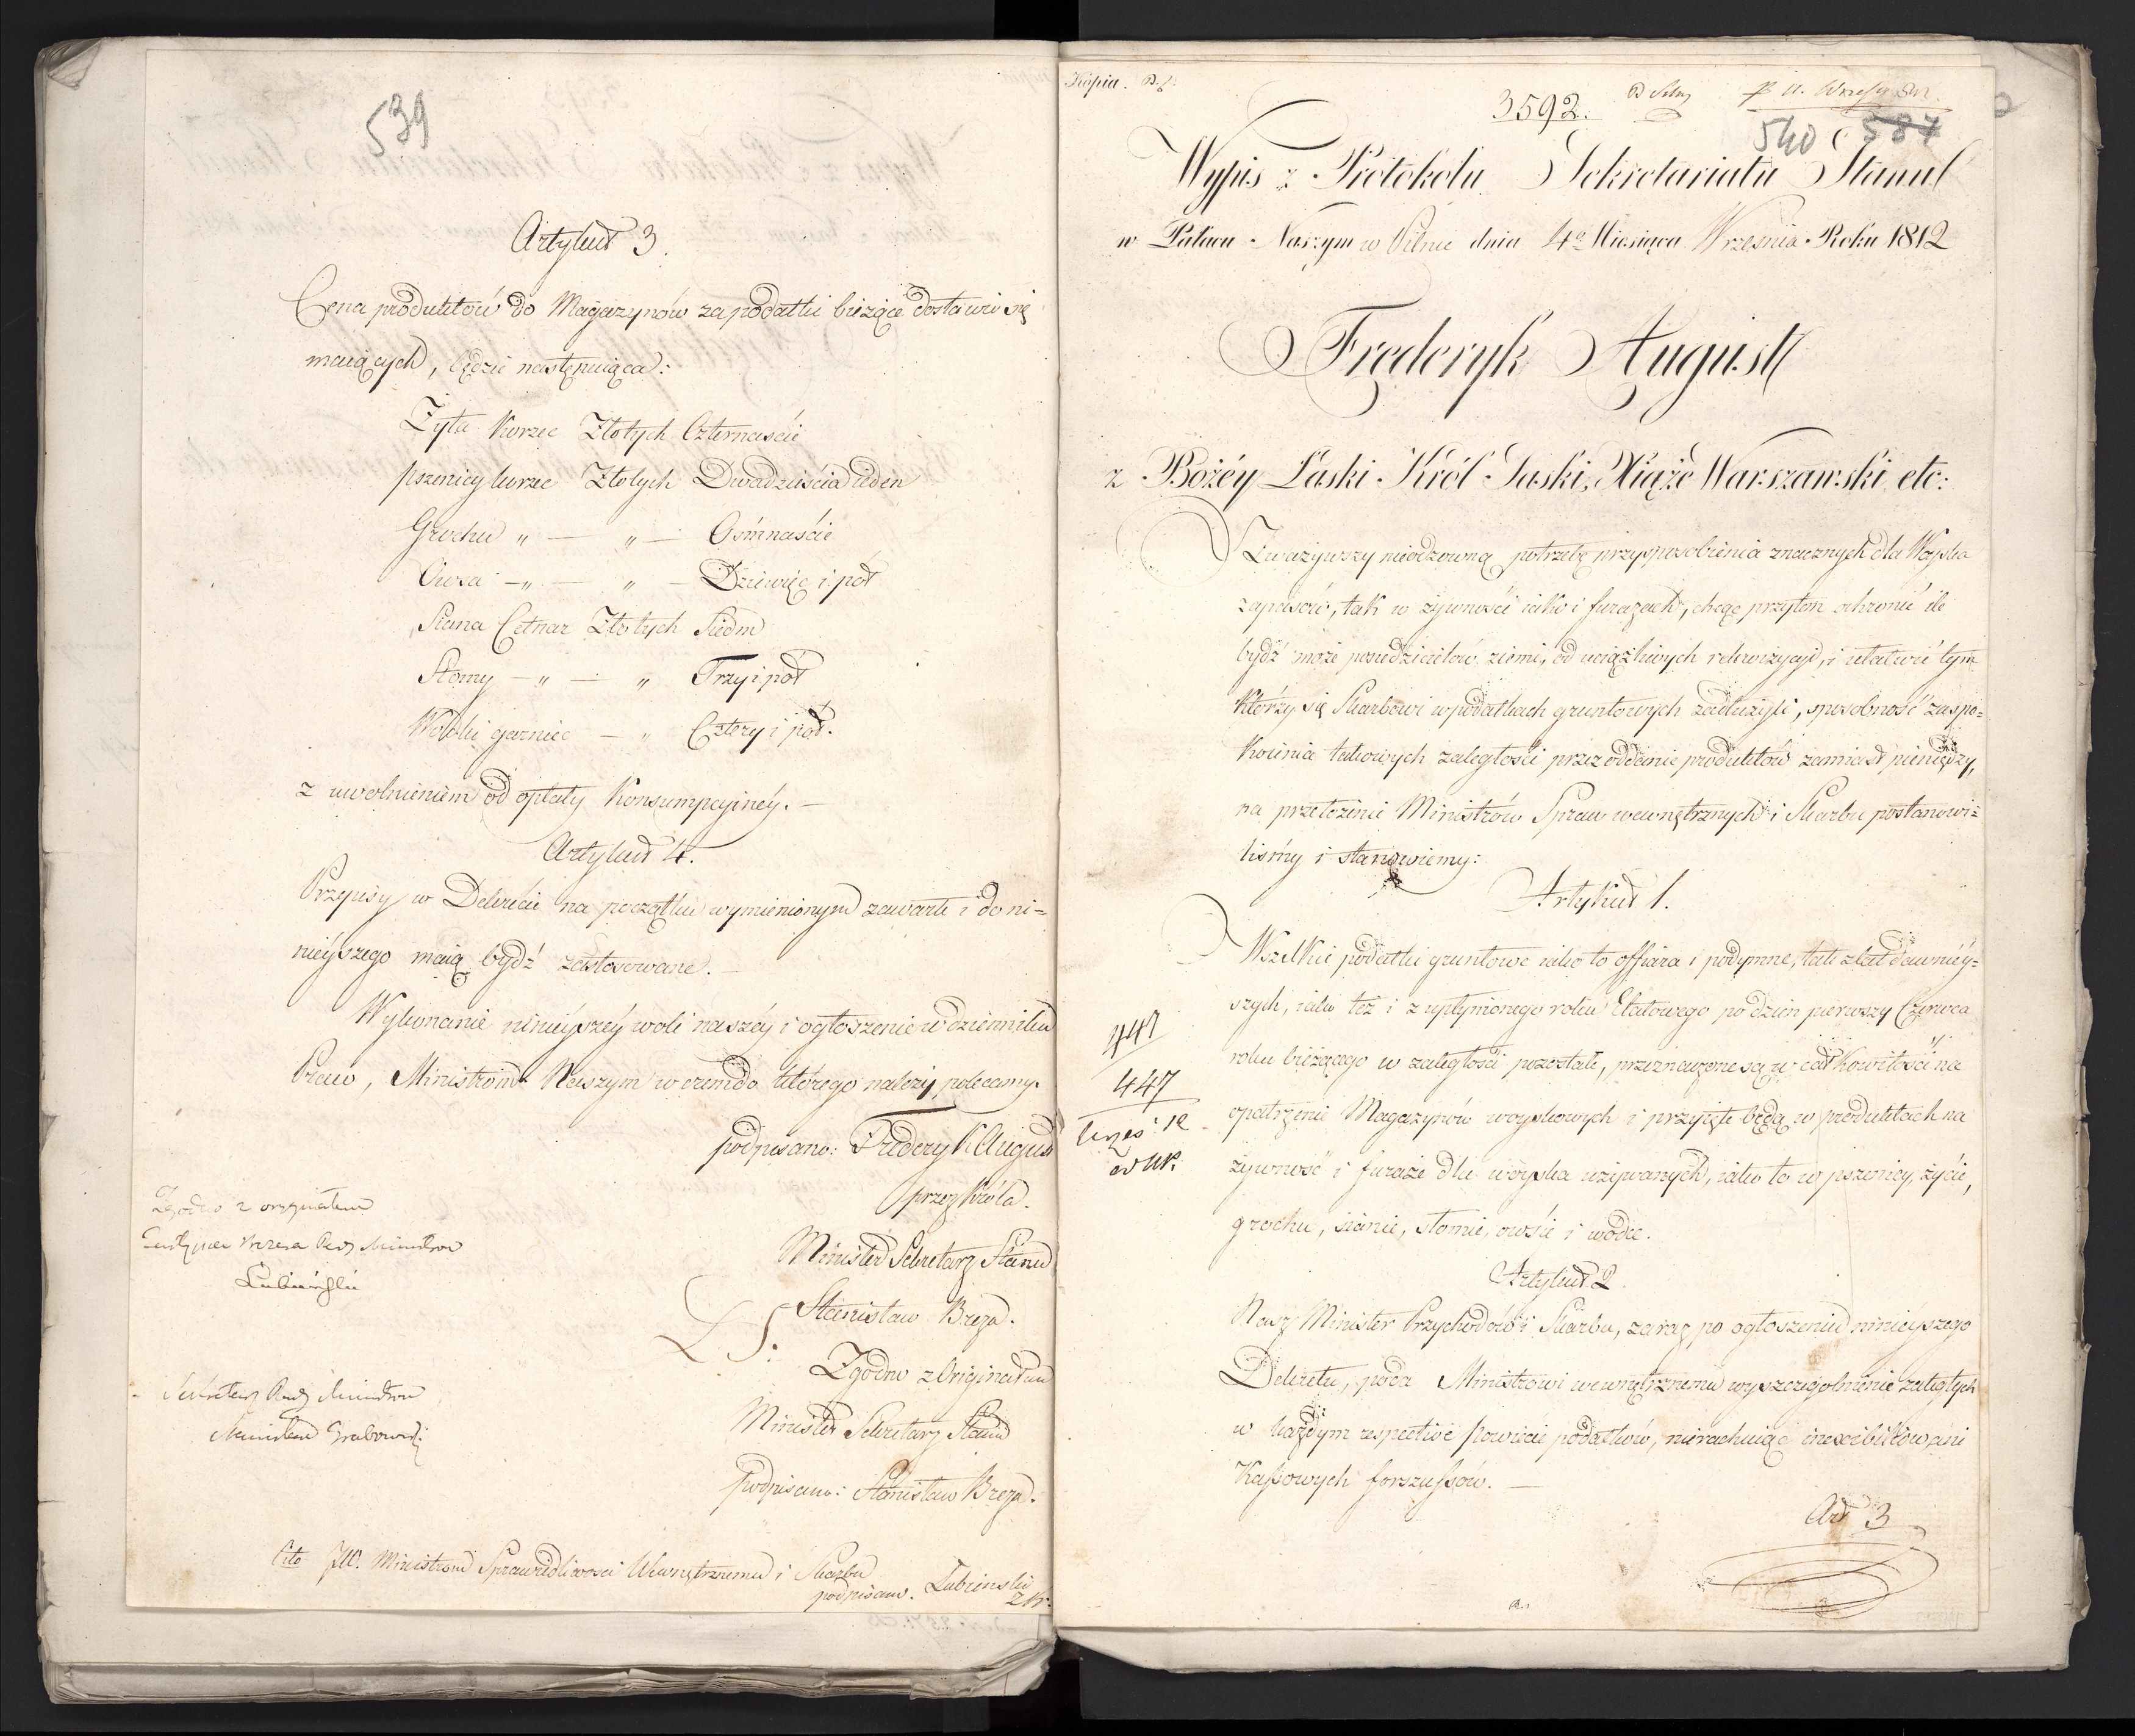 539
Artykuł 3.
Cena produktów do Magazynów za podatki bieżące dostawić się
maiących, będzie nastęnuiąca:
Żyta Korzec Złotych Czternaście
pszenicy korzec Złotych Dwadzieścia ieden
Grochu „ — „ — Ośmnaście
Owsa — „ — „ — Dziewięć i pół
Siana Cetnar Złotych Siedm
Słomy — „ — „ Trzy i pół
Wódki garniec — „ Cztery i pół.
z uwolnieniem od opłaty Konsumpcyinéy. —
Artykuł 4.
Przepisy w Dekrecie na początku wymienionym zawarte i do ni=
nieyszego maią bydź zastosowane. —
Wykonanie ninieyszéy woli naszéy i ogłoszenie w dzienniku
Praw, Ministrom Naszym w czem do którego należy, polecamy.
podpisano: Fryderyk August
przez Króla.
Minister Sekretarz Stanu
L S: Stanisław Breza.
Zgodno z Originałem
Minister Sekretarz Stanu
podpisano: Stanisław Breza.
Zgodno z oryginałem
Zastępca Prezesa Rady Ministrów
Łubieński
Sekretarz Rady Ministrów
Stanisław Grabowski
Cito JW. Ministrom Sprawiedliwości Wewnętrznemu i Skarbu
podpisano. Łubieński
z Kr.
Kopia.
3592.
540 587
Wypis z Protokołu Sekretariatu Stanu
w Pałacu Naszym w Pilnic dnia 4º Miesiąca Września Roku 1812
Frederyk August
z Bożéy Łaski Król Saski, Xiąże Warszawski etc:
Zważywszy nieodzowną potrzebę przysposobienia znacznych dla Woyska
zapasów, tak w żywności iako i furażach, chcąc przytem ochronić ile
bydź może posiedzicielów ziemi, od uciążliwych rekwizycyi, i ułatwić tym
którzy się Skarbowi w podatkach gruntowych zadłużyli, sposobność zaspo=
koienia takowych zaległości przez oddanie produktów zamiast pieniędzy,
na przełożenie Ministrów Spraw wewnętrznych i Skarbu postanowi=
liśmy i stanowiemy:
Artykuł 1.
Wszelkie podatki gruntowe iako to offiara i podymne, tak z lat dawniéy=
szych, iako też i z upłynionego roku Etatowego po dzień pierwszy Czerwca
roku bieżącego w zaległości pozostałe, przeznaczone są w całkowitości na
opatrzenie Magazynów woyskowych i przyięte będą w produktach na
żywność i furaże dla woyska używanych, iako to w pszenicy, życie,
grochu, sianie, słomie, owsie i wódce.
447
447
Artykuł 2.
Nasz Minister Przychodów i Skarbu, zaraz po ogłoszeniu ninieyszego
Dekretu, poda Ministrowi wewnętrznemu wyszczegolnienie zaległych
w każdym respective Powiecie podatków, nierachuiąc inexeibilów ani
Kassowych forszussów. —
Art 3